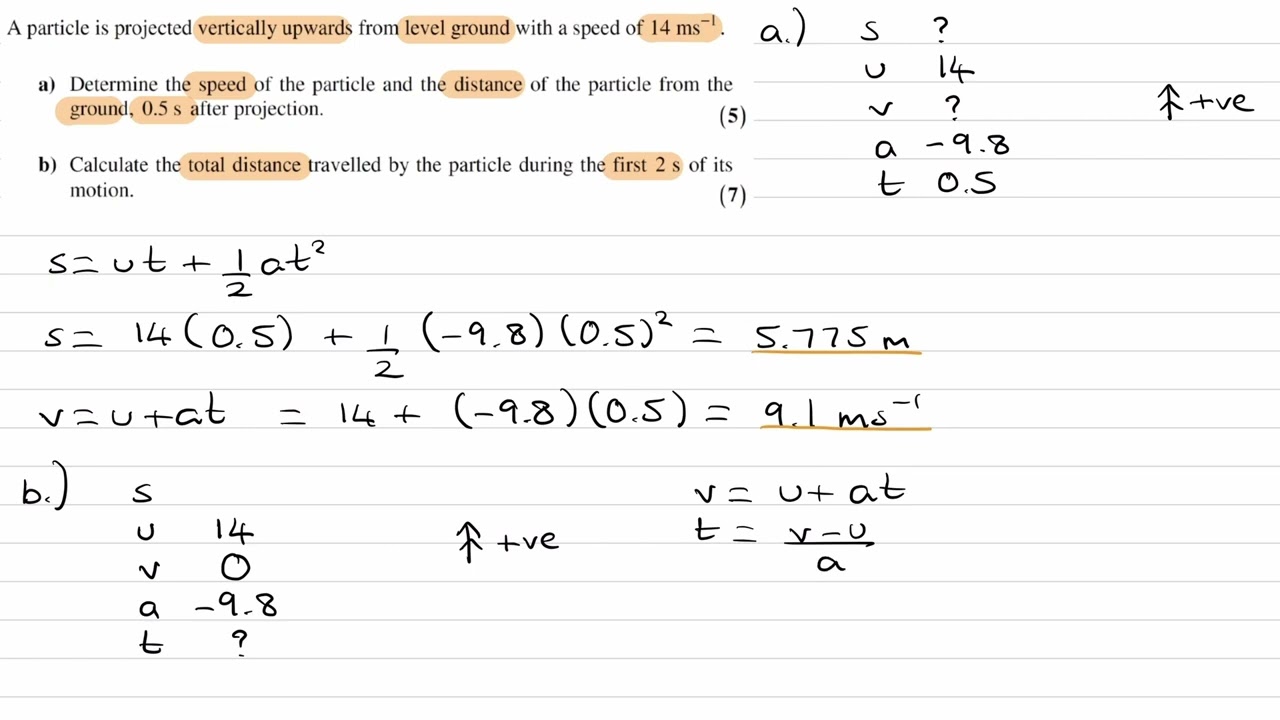 A particle is projected vertically upwards from level ground with a speed of 14 ms⁻¹.
a) Determine the speed of the particle and the distance of the particle from the
ground, 0.5 s after projection.
(5)
b) Calculate the total distance travelled by the particle during the first 2 s of its
motion.
(7)
a.) s ?
u 14
v ?
a -9.8
t 0.5
↑ +ve
s = ut + 1/2 at²
s = 14(0.5) + 1/2 (-9.8)(0.5)² = 5.775 m
v = u + at = 14 + (-9.8)(0.5) = 9.1 ms⁻¹
b.) s
u 14
v 0
a -9.8
t ?
↑ +ve
v = u + at
t = v - u / a